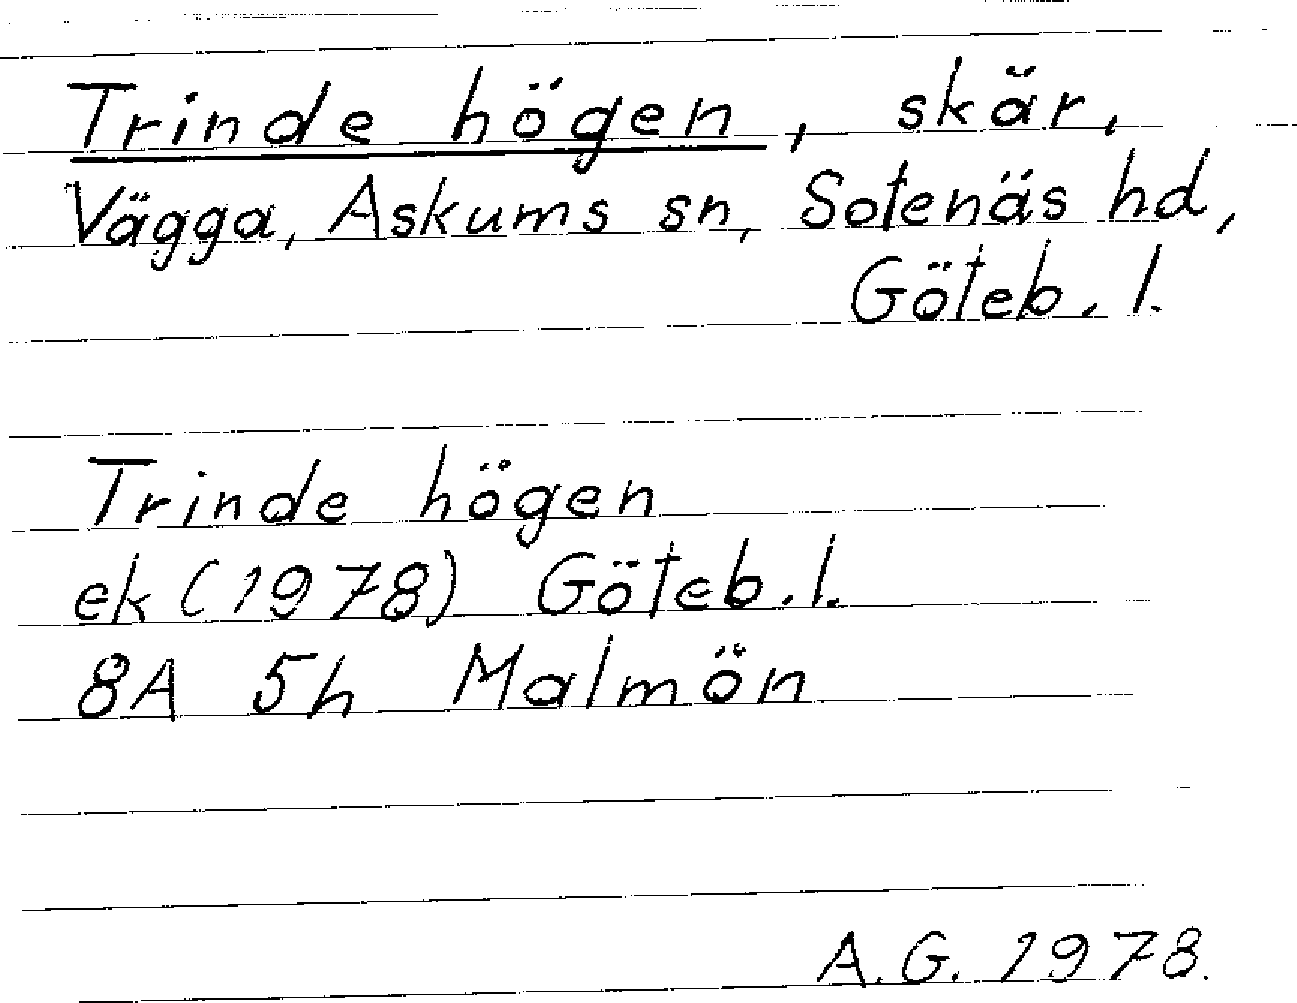 Trinde högen, skär,
Vägga, Askums sn, Sotenäs hd,
Göteb. l.
Trinde högen
ek (1978) Göteb. l.
8A 5h Malmön
A.G. 1978.